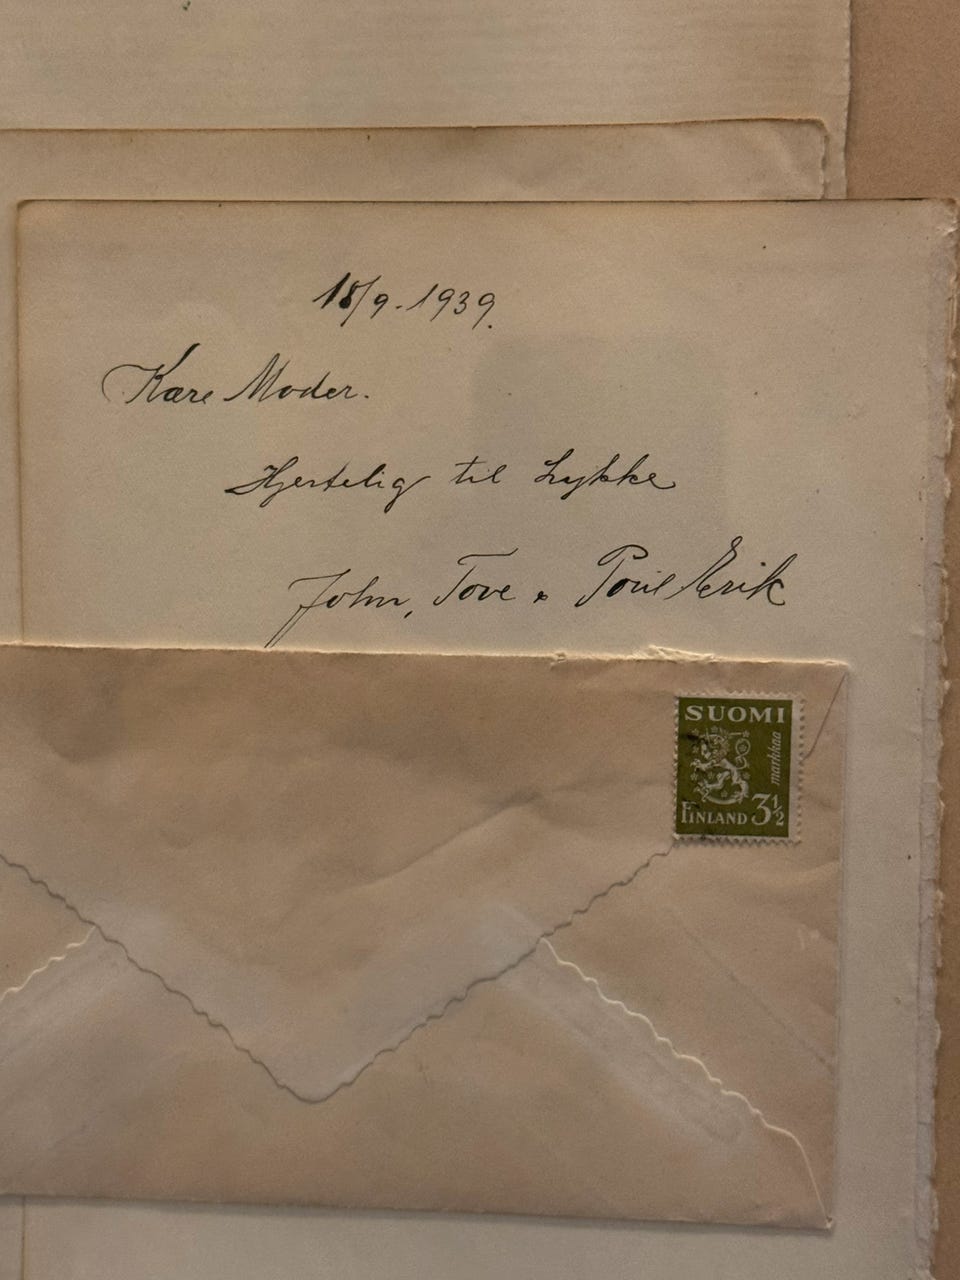 18/9-1939.
Kære Moder.
Hjertelig til Lykke
John, Tove & Poul Erik
SUOMI
markkaa
FINLAND 3½